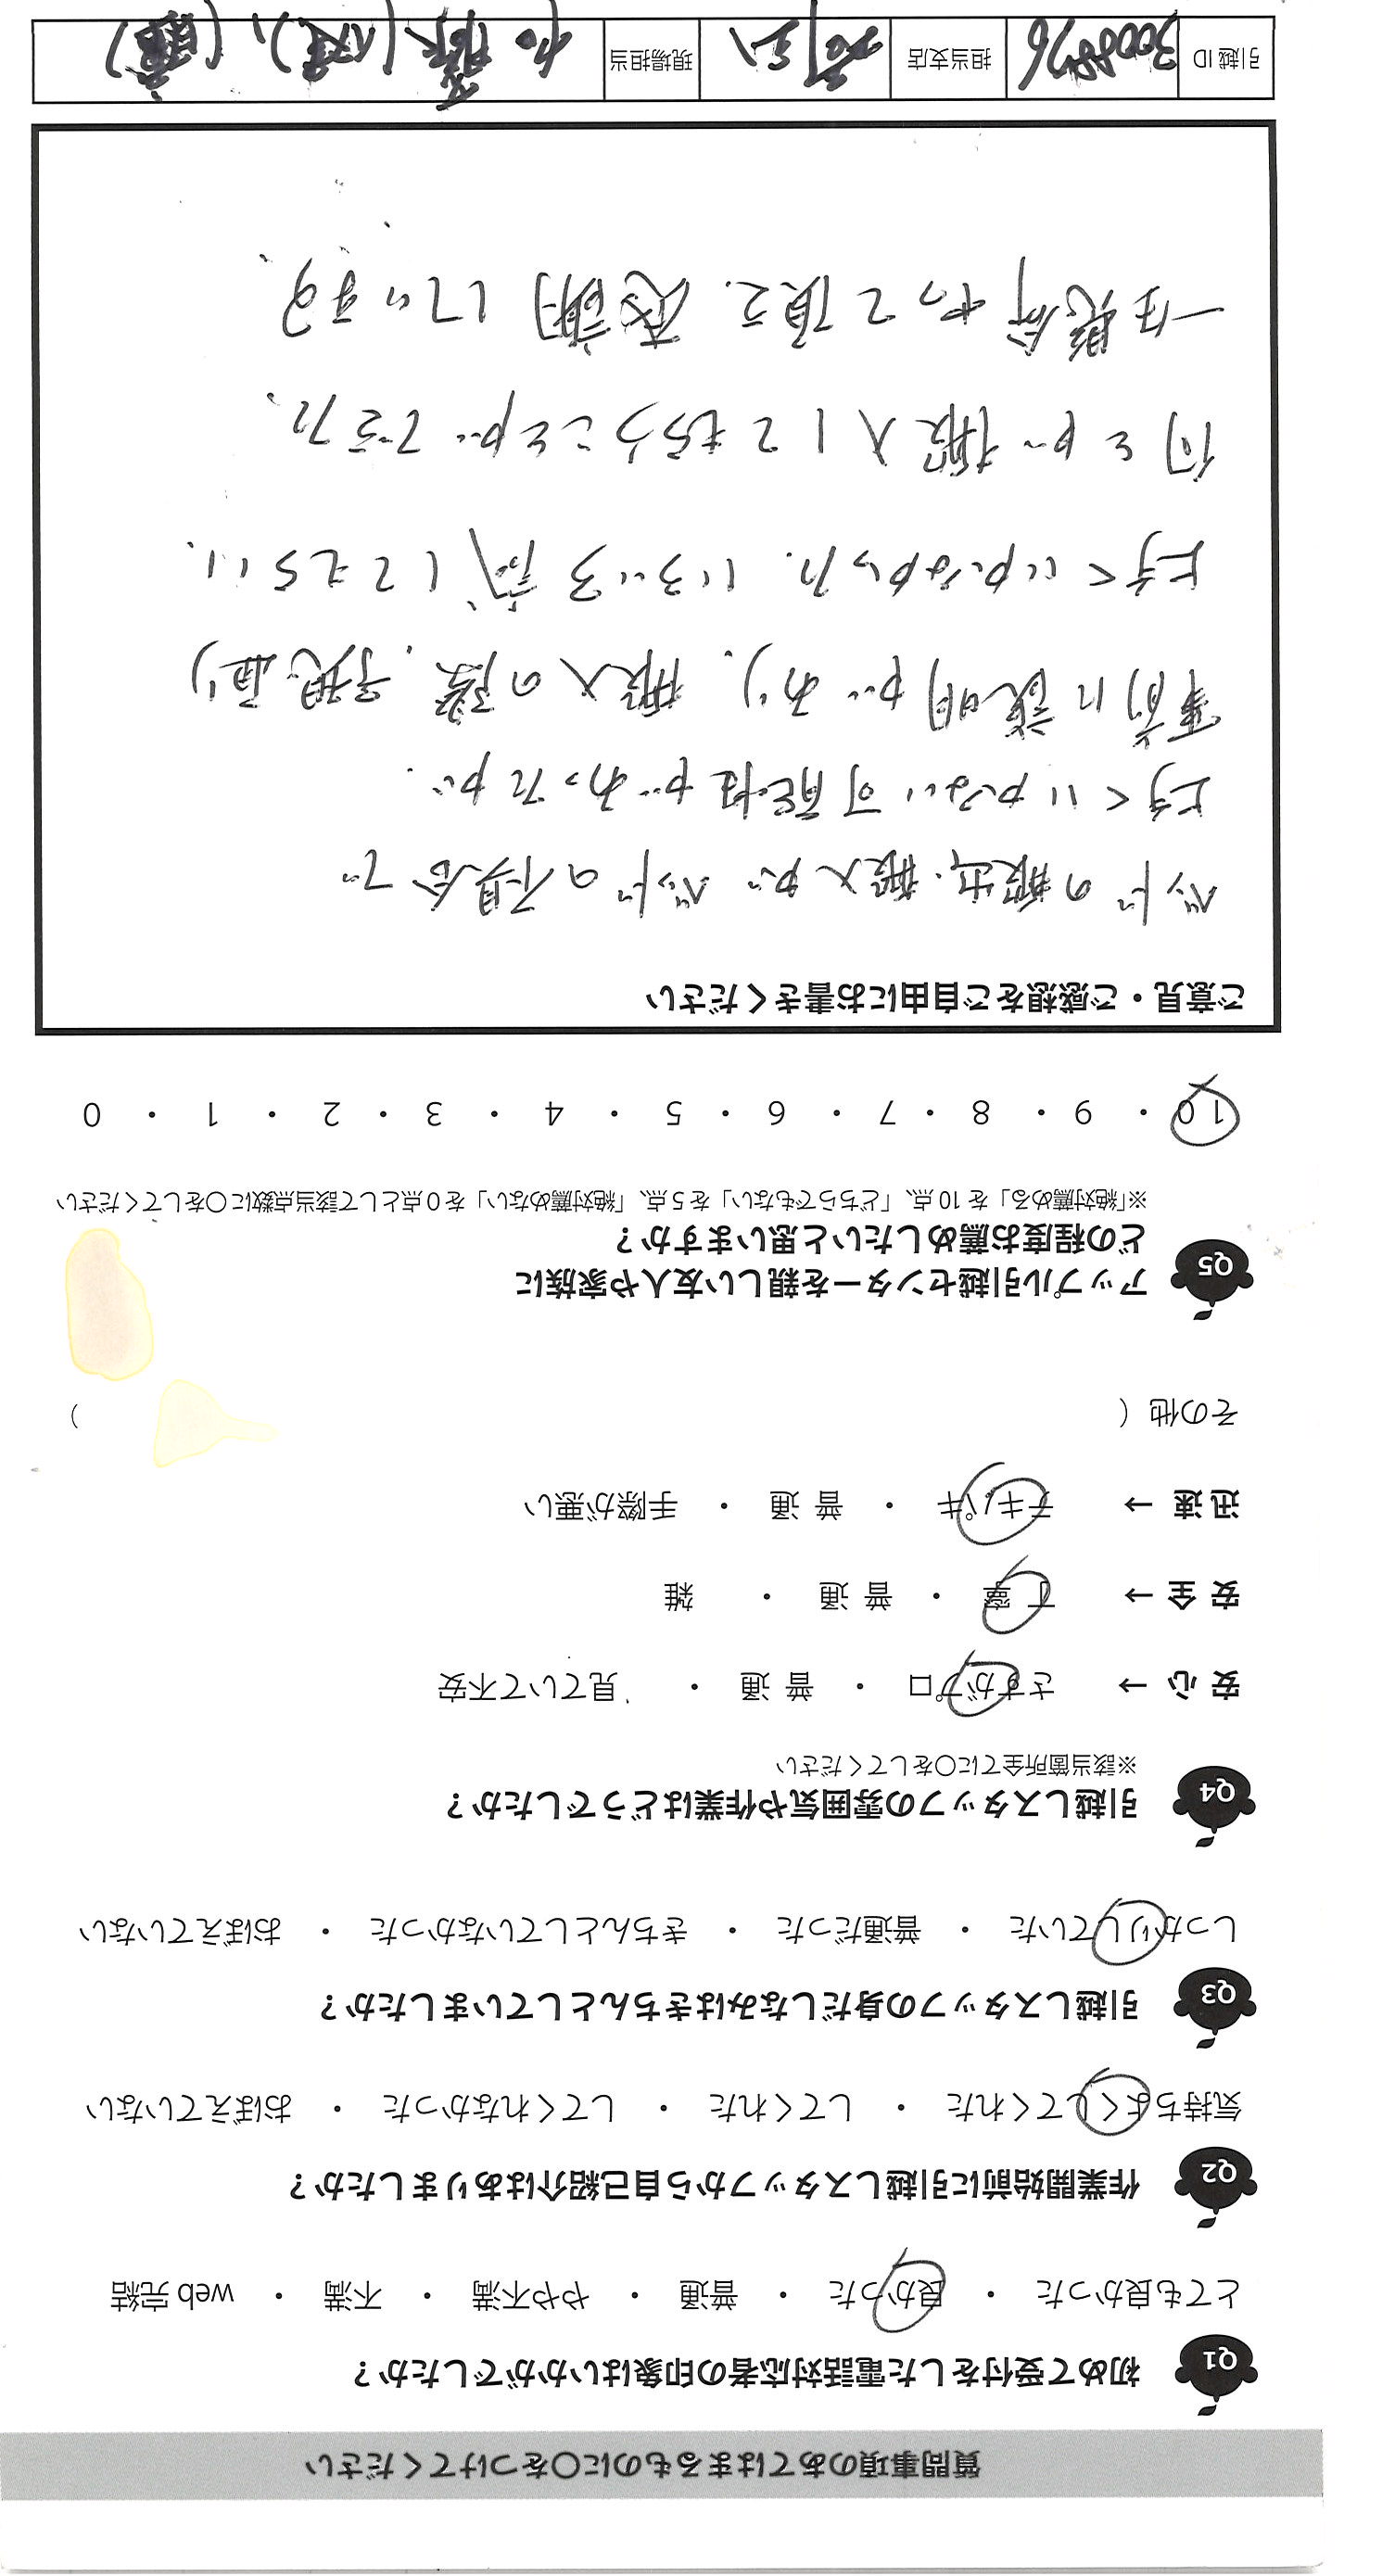 質問事項のあてはまるものに〇をつけてください
Q1 初めて受付をした電話対応者の印象はいかがでしたか？
とても良かった ・ 良かった ・ 普通 ・ やや不満 ・ 不満 ・ web 完結
Q2 作業開始前に引越しスタッフから自己紹介はありましたか？
気持ちよくしてくれた ・ してくれた ・ してくれなかった ・ おぼえていない
Q3 引越しスタッフの身だしなみはきちんとしていましたか？
しっかりしていた ・ 普通だった ・ きちんとしていなかった ・ おぼえていない
Q4 引越しスタッフの雰囲気や作業はどうでしたか？
※該当箇所全てに〇をしてください
安 心 → さすがプロ ・ 普 通 ・ 見ていて不安
安 全 → 丁 寧 ・ 普 通 ・ 雑
迅 速 → テキパキ ・ 普 通 ・ 手際が悪い
その他（ ）
Q5 アップル引越センターを親しい友人や家族に
どの程度お薦めしたいと思いますか？
※「絶対薦める」を 10 点、「どちらでもない」を 5 点、「絶対薦めない」を 0 点として該当点数に〇をしてください
10 ・ 9 ・ 8 ・ 7 ・ 6 ・ 5 ・ 4 ・ 3 ・ 2 ・ 1 ・ 0
ご意見・ご感想をご自由にお書きください
ベッドの搬出、搬入が ベッドの不具合で
上手くいかない可能性があったが、
事前に説明があり、搬入の際、予想通り
上手くいかなかった。いろいろ試してもらい、
何とか搬入してもらうことができた。
一生懸命やって頂き、感謝しています。
引越 ID 担当支店 現場担当